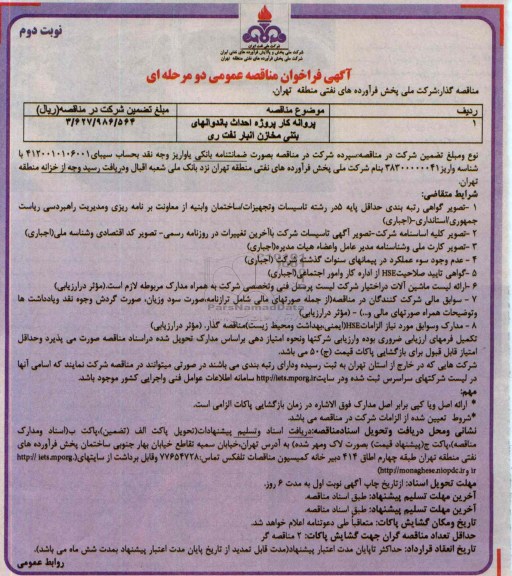 نوبت دوم
شرکت ملی پخش فرآورده های نفتی ایران
شرکت ملی پخش فرآورده های نفتی منطقه تهران
آگهی فراخوان مناقصه عمومی دو مرحله ای
مناقصه گذار:شرکت ملی پخش فرآورده های نفتی منطقه تهران.
ردیف موضوع مناقصه مبلغ تضمین شرکت در مناقصه(ریال)
۱ پروانه کار پروژه احداث باندوالهای بتنی مخازن انبار نفت ری ۳/۶۲۷/۹۸۶/۵۶۴
نوع ومبلغ تضمین شرکت در مناقصه:سپرده شرکت در مناقصه بصورت ضمانتنامه بانکی یاواریز وجه نقد بحساب سیبای۴۱۲۰۰۱۰۱۰۶۰۰۱ با
شناسه واریز بنام شرکت ملی پخش فرآورده های نفتی منطقه تهران نزد بانک ملی شعبه اقبال ودریافت رسید وجه از خزانه منطقه
تهران.
شرایط متقاضی:
۱-تصویر گواهی رتبه بندی حداقل پایه ۵در رشته تاسیسات وتجهیزات/ساختمان وابنیه از معاونت بر نامه ریزی ومدیریت راهبردسی ریاست
جمهوری/استانداری-(اجباری)
۲-تصویر کلیه اساسنامه شرکت-تصویر آگهی تاسیسات شرکت باآخرین تغییرات در روزنامه رسمی- تصویر کد اقتصادی وشناسه ملی(اجباری)
۳-تصویر کارت ملی وشناسنامه مدیر عامل واعضاء هیات مدیره(اجباری)
۴-عدم وجود سوء عملکرد در پیمانهای سنوات گذشته شرکت (اجباری)
۵-گواهی تایید صلاحیتHSE از اداره کار وامور اجتماعی(اجباری)
۶-ارائه لیست ماشین آلات دراختیار شرکت لیست پرسنل فنی وتخصصی شرکت به همراه مدارک مربوطه لازم است.(مؤثر درارزیابی)
۷- سوابق مالی شرکت کنندگان در مناقصه(از جمله صورتهای مالی شامل ترازنامه،صورت سود وزیان، صورت گردش وجوه نقد ویادداشت ها
وتوضیحات همراه صورتهای مالی و..) - (مؤثر درارزیابی)
۸- مدارک وسوابق مورد نیاز الزاماتHSE(ایمنی،بهداشت ومحیط زیست)مناقصه گذار. (مؤثر درارزیابی)
تکمیل فرمهای ارزیابی ضروری بوده وارزیابی شرکتها ونحوه امتیاز دهی براساس مدارک تحویل شده دراسناد مناقصه صورت می پذیرد وحداقل
امتیاز قابل قبول برای بازگشایی پاکات قیمت (ج)۵۰ می باشد.
شرکت هایی که در خارج از استان تهران به ثبت رسیده ودارای رتبه بندی می باشند در صورتی میتوانند در مناقصه شرکت نمایند که اسامی آنها
در لیست شرکتهای سراسرس ثبت شده ودر سایتhttp://iets.mporg.ir سامانه اطلاعات عوامل فنی واجرایی کشور موجود باشد.
مهم:
* ارائه اصل ویا کپی برابر اصل مدارک فوق الاشاره در زمان بازگشایی پاکات الزامی است.
*شروط تعیین شده از الزامات شرکت در مناقصه می باشد.
نشانی ومحل دریافت وتحویل اسنادمناقصه:دریافت اسناد وتسلیم پیشنهادات(تحویل پاکت الف (تضمین)،پاکت ب(اسناد ومدارک
مناقصه)،پاکت ج(پیشنهاد قیمت) بصورت لاک ومهر شده) به آدرس تهران،خیابان سمیه تقاطع خیابان بهار جنوبی ساختمان پخش فرآورده های
نفتی منطقه تهران طبقه چهارم اطاق ۴۱۴ دبیر خانه کمیسیون مناقصات تلفکس تماس:۷۷۶۵۴۷۲۸ وقابل برداشت از سایتهای(http:// iets.mporg.
ir و http://monaghese.niopdc.ir)
مهلت تحویل اسناد: ازتاریخ چاپ آگهی نوبت اول به مدت ۶ روز.
آخرین مهلت تسلیم پیشنهاد: طبق اسناد مناقصه.
آخرین مهلت تسلیم پیشنهاد: طبق اسناد مناقصه.
تاریخ ومکان گشایش پاکات: متعاقباً طی دعوتنامه اعلام خواهد شد.
حداقل تعداد مناقصه گران جهت گشایش پاکات: ۲ مناقصه گر
تاریخ انعقاد قرارداد: حداکثر تاپایان مدت اعتبار پیشنهاد(مدت قابل تمدید از تاریخ پایان مدت اعتبار پیشنهاد بمدت شش ماه می باشد).
روابط عمومی
ParsNamadData